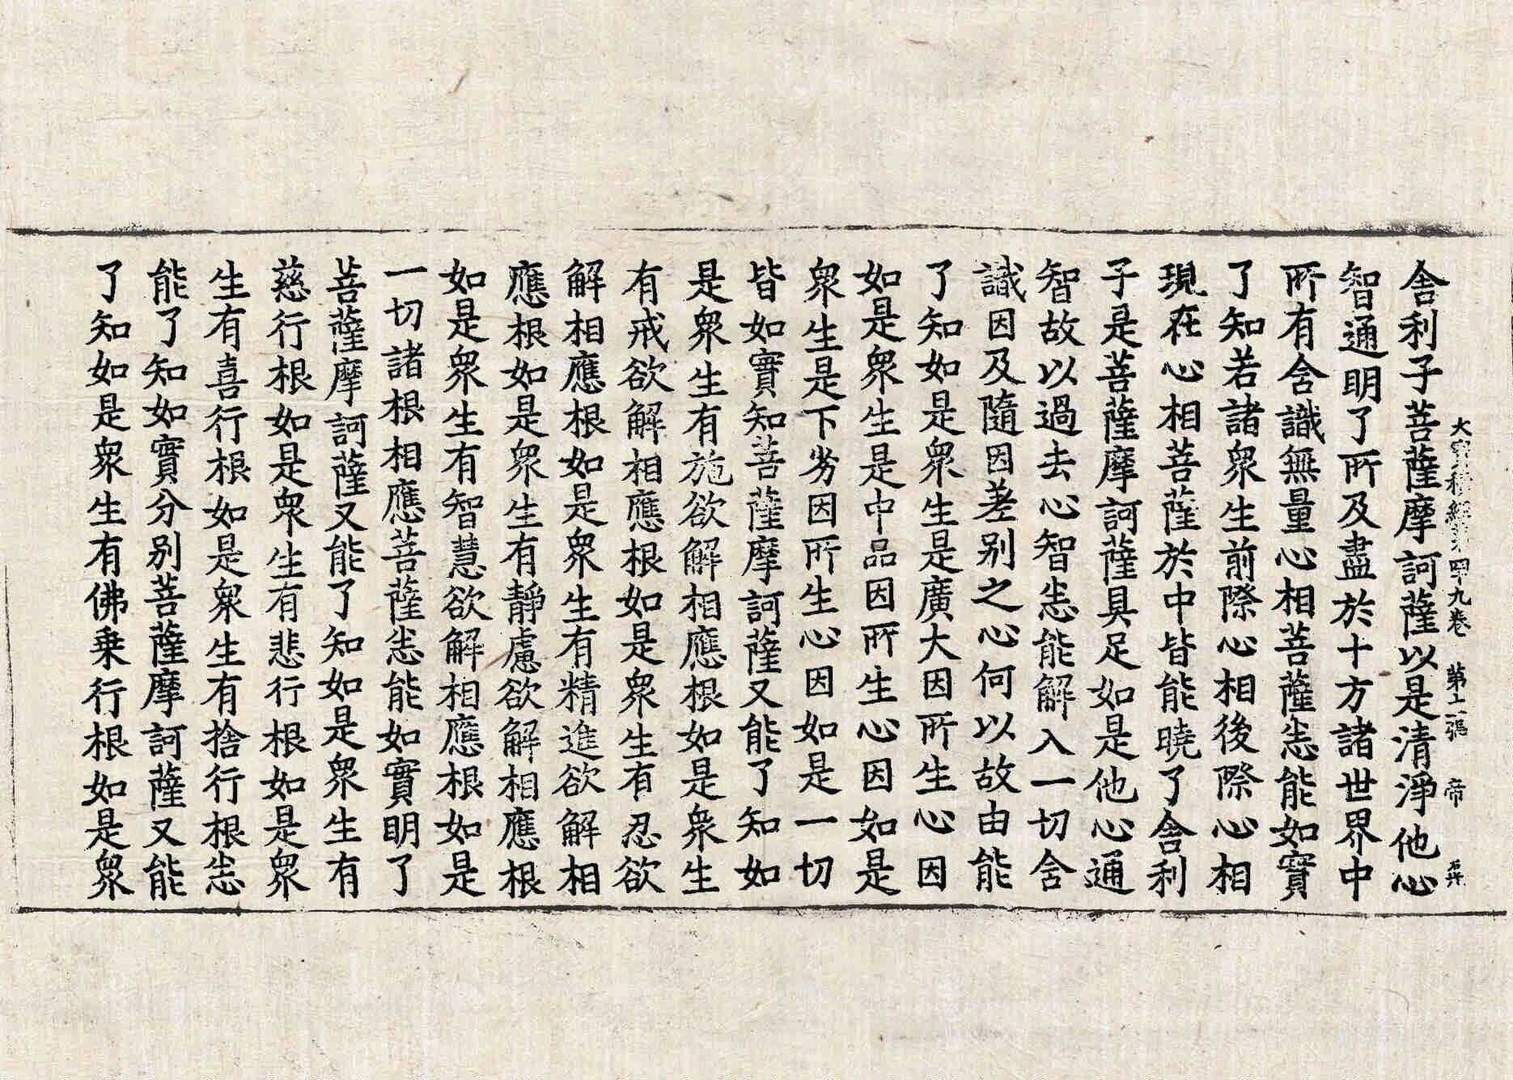 大寶積經第四十九卷　第十二張　帝
舍利子菩薩摩訶薩以是清淨他心
智通明了所及盡於十方諸世界中
所有含識無量心相菩薩悉能如實
了知若諸衆生前際心相後際心相
現在心相菩薩於中皆能曉了舍利
子是菩薩摩訶薩具足如是他心通
智故以過去心智悉能解入一切含
識因及隨因差別之心何以故由能
了知如是衆生是廣大因所生心因
如是衆生是中品因所生心因如是
衆生是下劣因所生心因如是一切
皆如實知菩薩摩訶薩又能了知如
是衆生有施欲解相應根如是衆生
有戒欲解相應根如是衆生有忍欲
解相應根如是衆生有精進欲解相
應根如是衆生有靜慮欲解相應根
如是衆生有智慧欲解相應根如是
一切諸根相應菩薩悉能如實明了
菩薩摩訶薩又能了知如是衆生有
慈行根如是衆生有悲行根如是衆
生有喜行根如是衆生有捨行根悉
能了知如實分別菩薩摩訶薩又能
了知如是衆生有佛乗行根如是衆